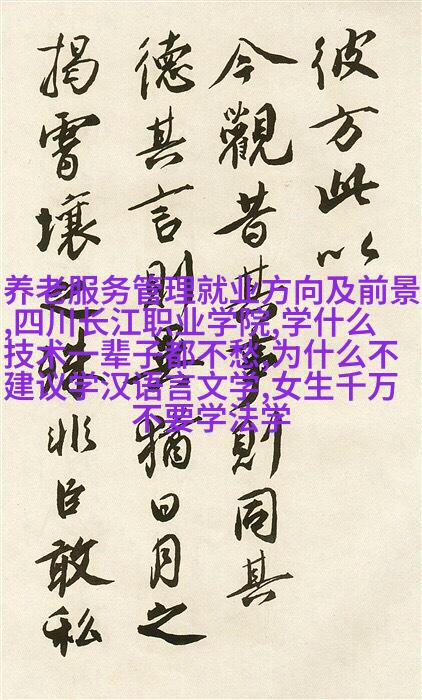 彼方此以
今觀昔其事則同其
德其言則異猶日月之
揭霄壤之殊非臣敢私
养老服务管理就业方向及前景
,四川长江职业学院,学什么
技术一辈子都不愁,为什么不
建议学汉语言文学,女生千万
不要学法学